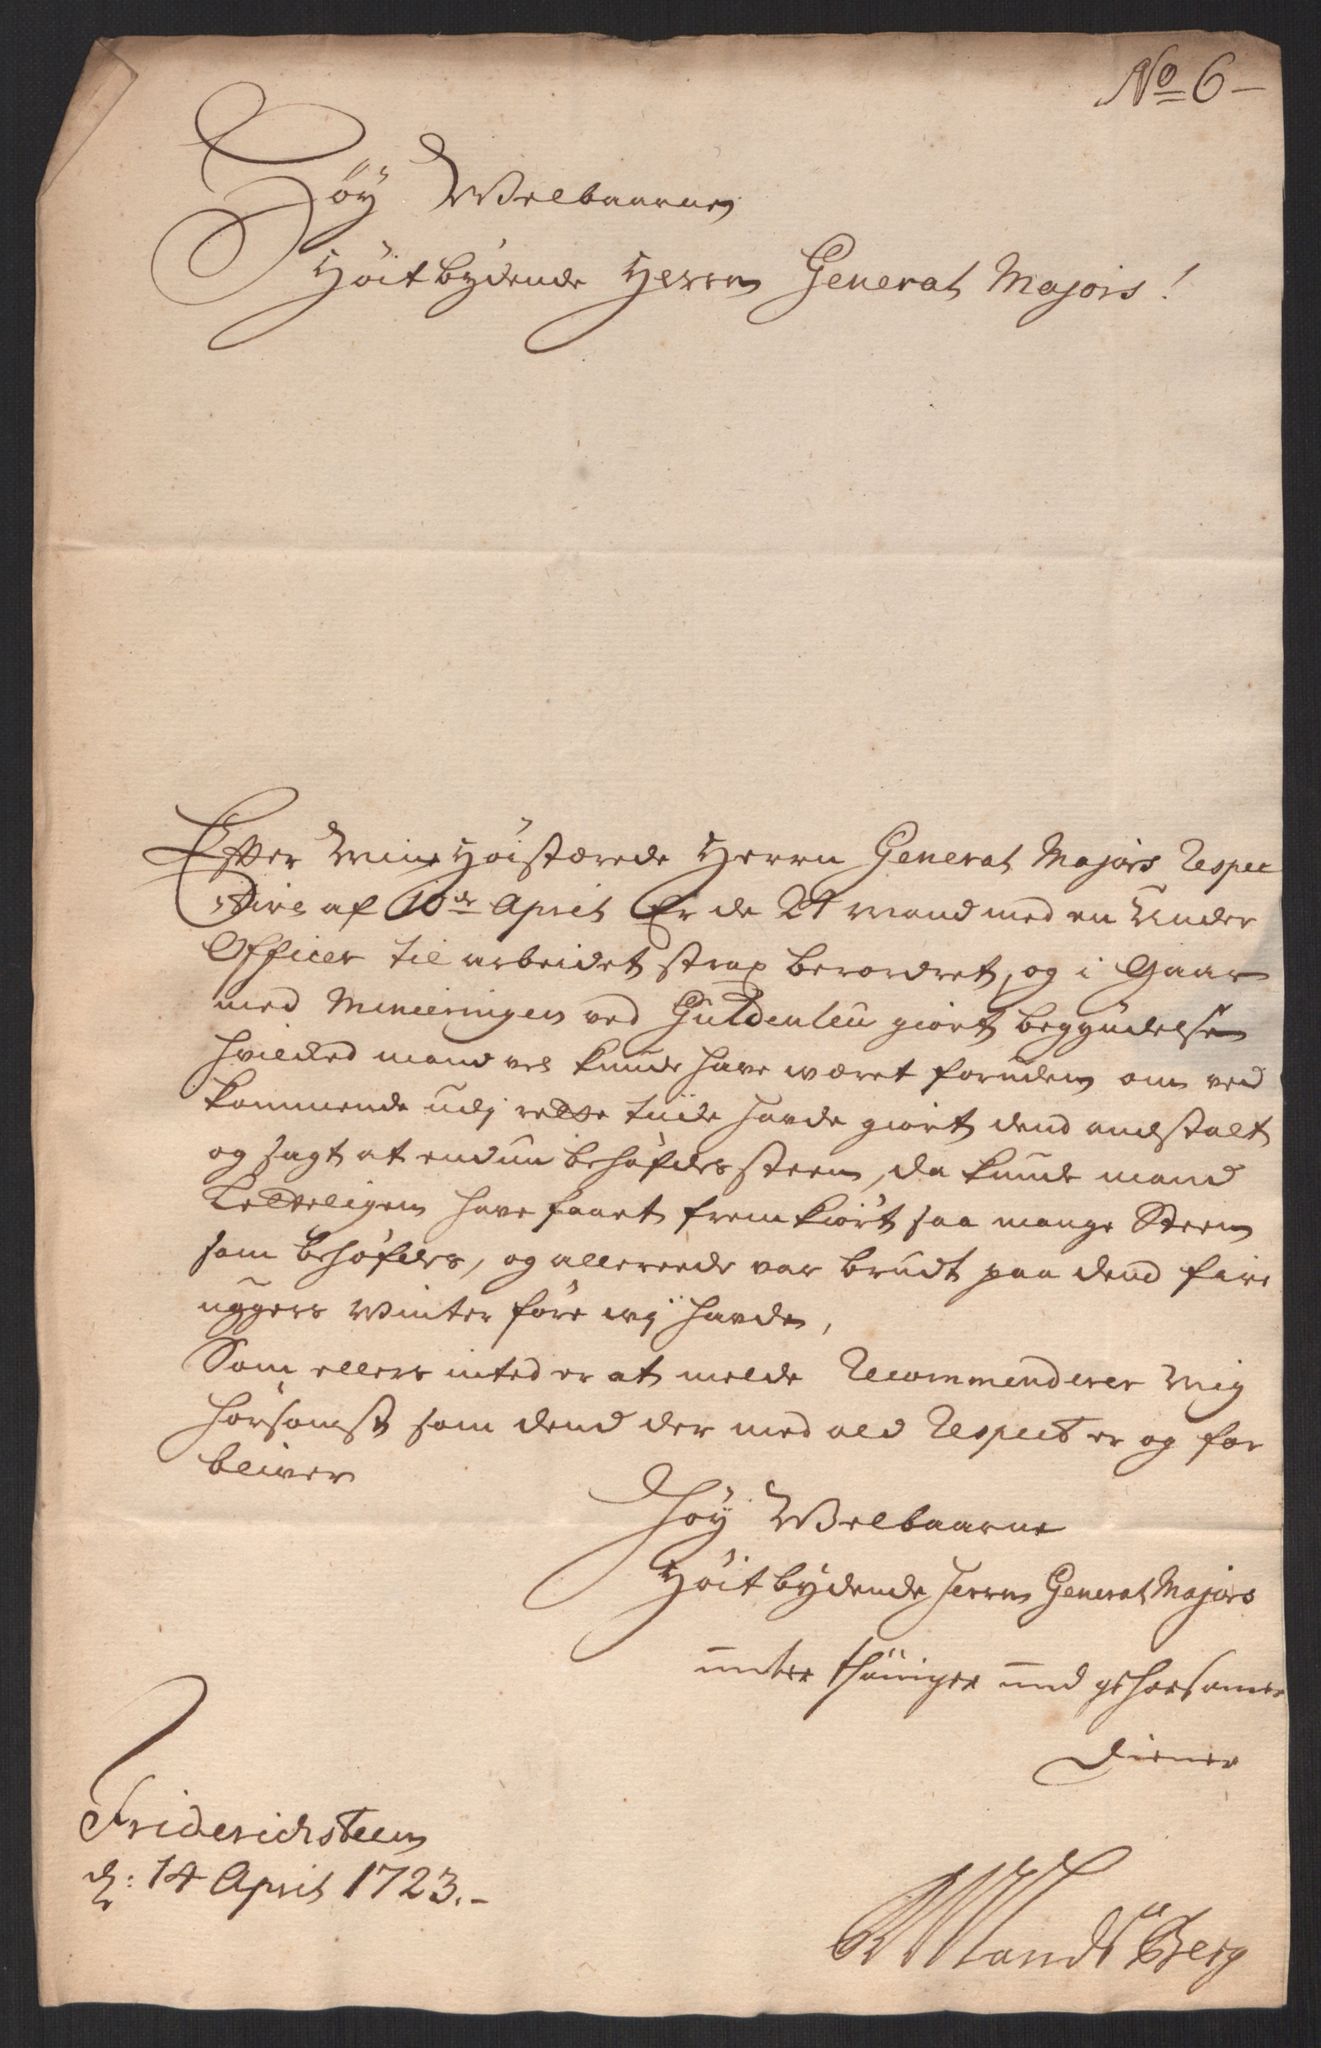 No 6
Höy Welbaarne
Höitbydende Herrn General Majors!
Effter Min Höistærede Herrn General Majors Respec
tive af 10de April Er de 24 Mand med en Under
Officer til arbeidet strax berordret, og i Gaar
med Mineeringen ved Guldenleu giört begyndelsen
hvilcked mand vel kunde have wæret foruden om ved
kommende udj rette tiide havde giört dend andstalt
og sagt at endnu behöfdes steen, da kunde mand
Letteligen have faaet frem kiört saa mange Steen
som behöfdes, og allereede var brudt paa dend fire
uggers Winter före wij havde,
Som ellers inted er at melde Recommenderer Mig
hörsomst som dend der med ald Respect er og for
bliver
Höy Welbaarne
Höitbydende Herrn General Majors
unter thäniger und gehorsamer
Diener
Friderichsteen
d: 14 April 1723.
Landsberg